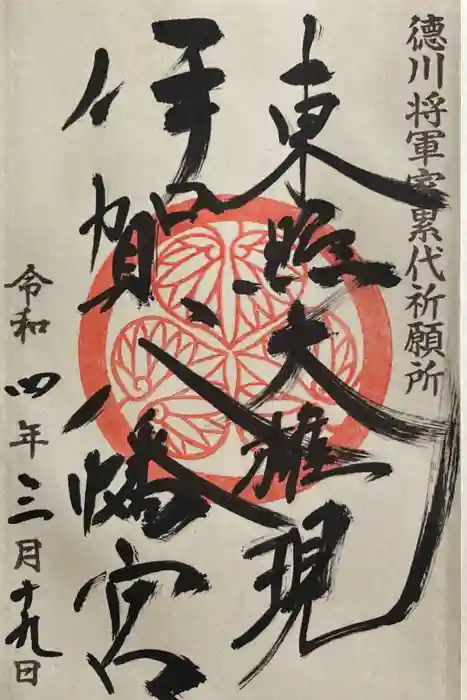 徳川将軍家累代祈願所
東照大雄現
伊賀八幡宮
令和四年三月十九日